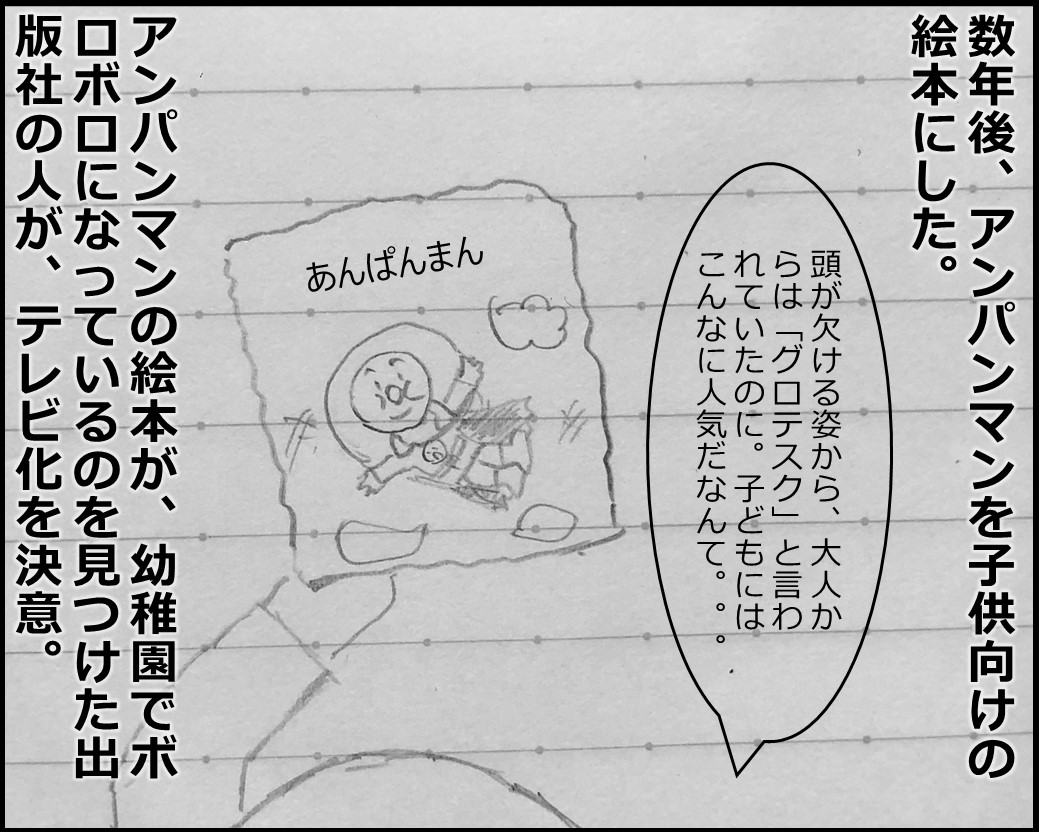 数年後、アンパンマンを子供向けの
絵本にした。
頭が欠ける姿から、大人か
らは「グロテスク」と言わ
れていたのに。子どもには
こんなに人気だなんて。。。
あんぱんまん
アンパンマンの絵本が、幼稚園でボ
ロボロになっているのを見つけた出
版社の人が、テレビ化を決意。